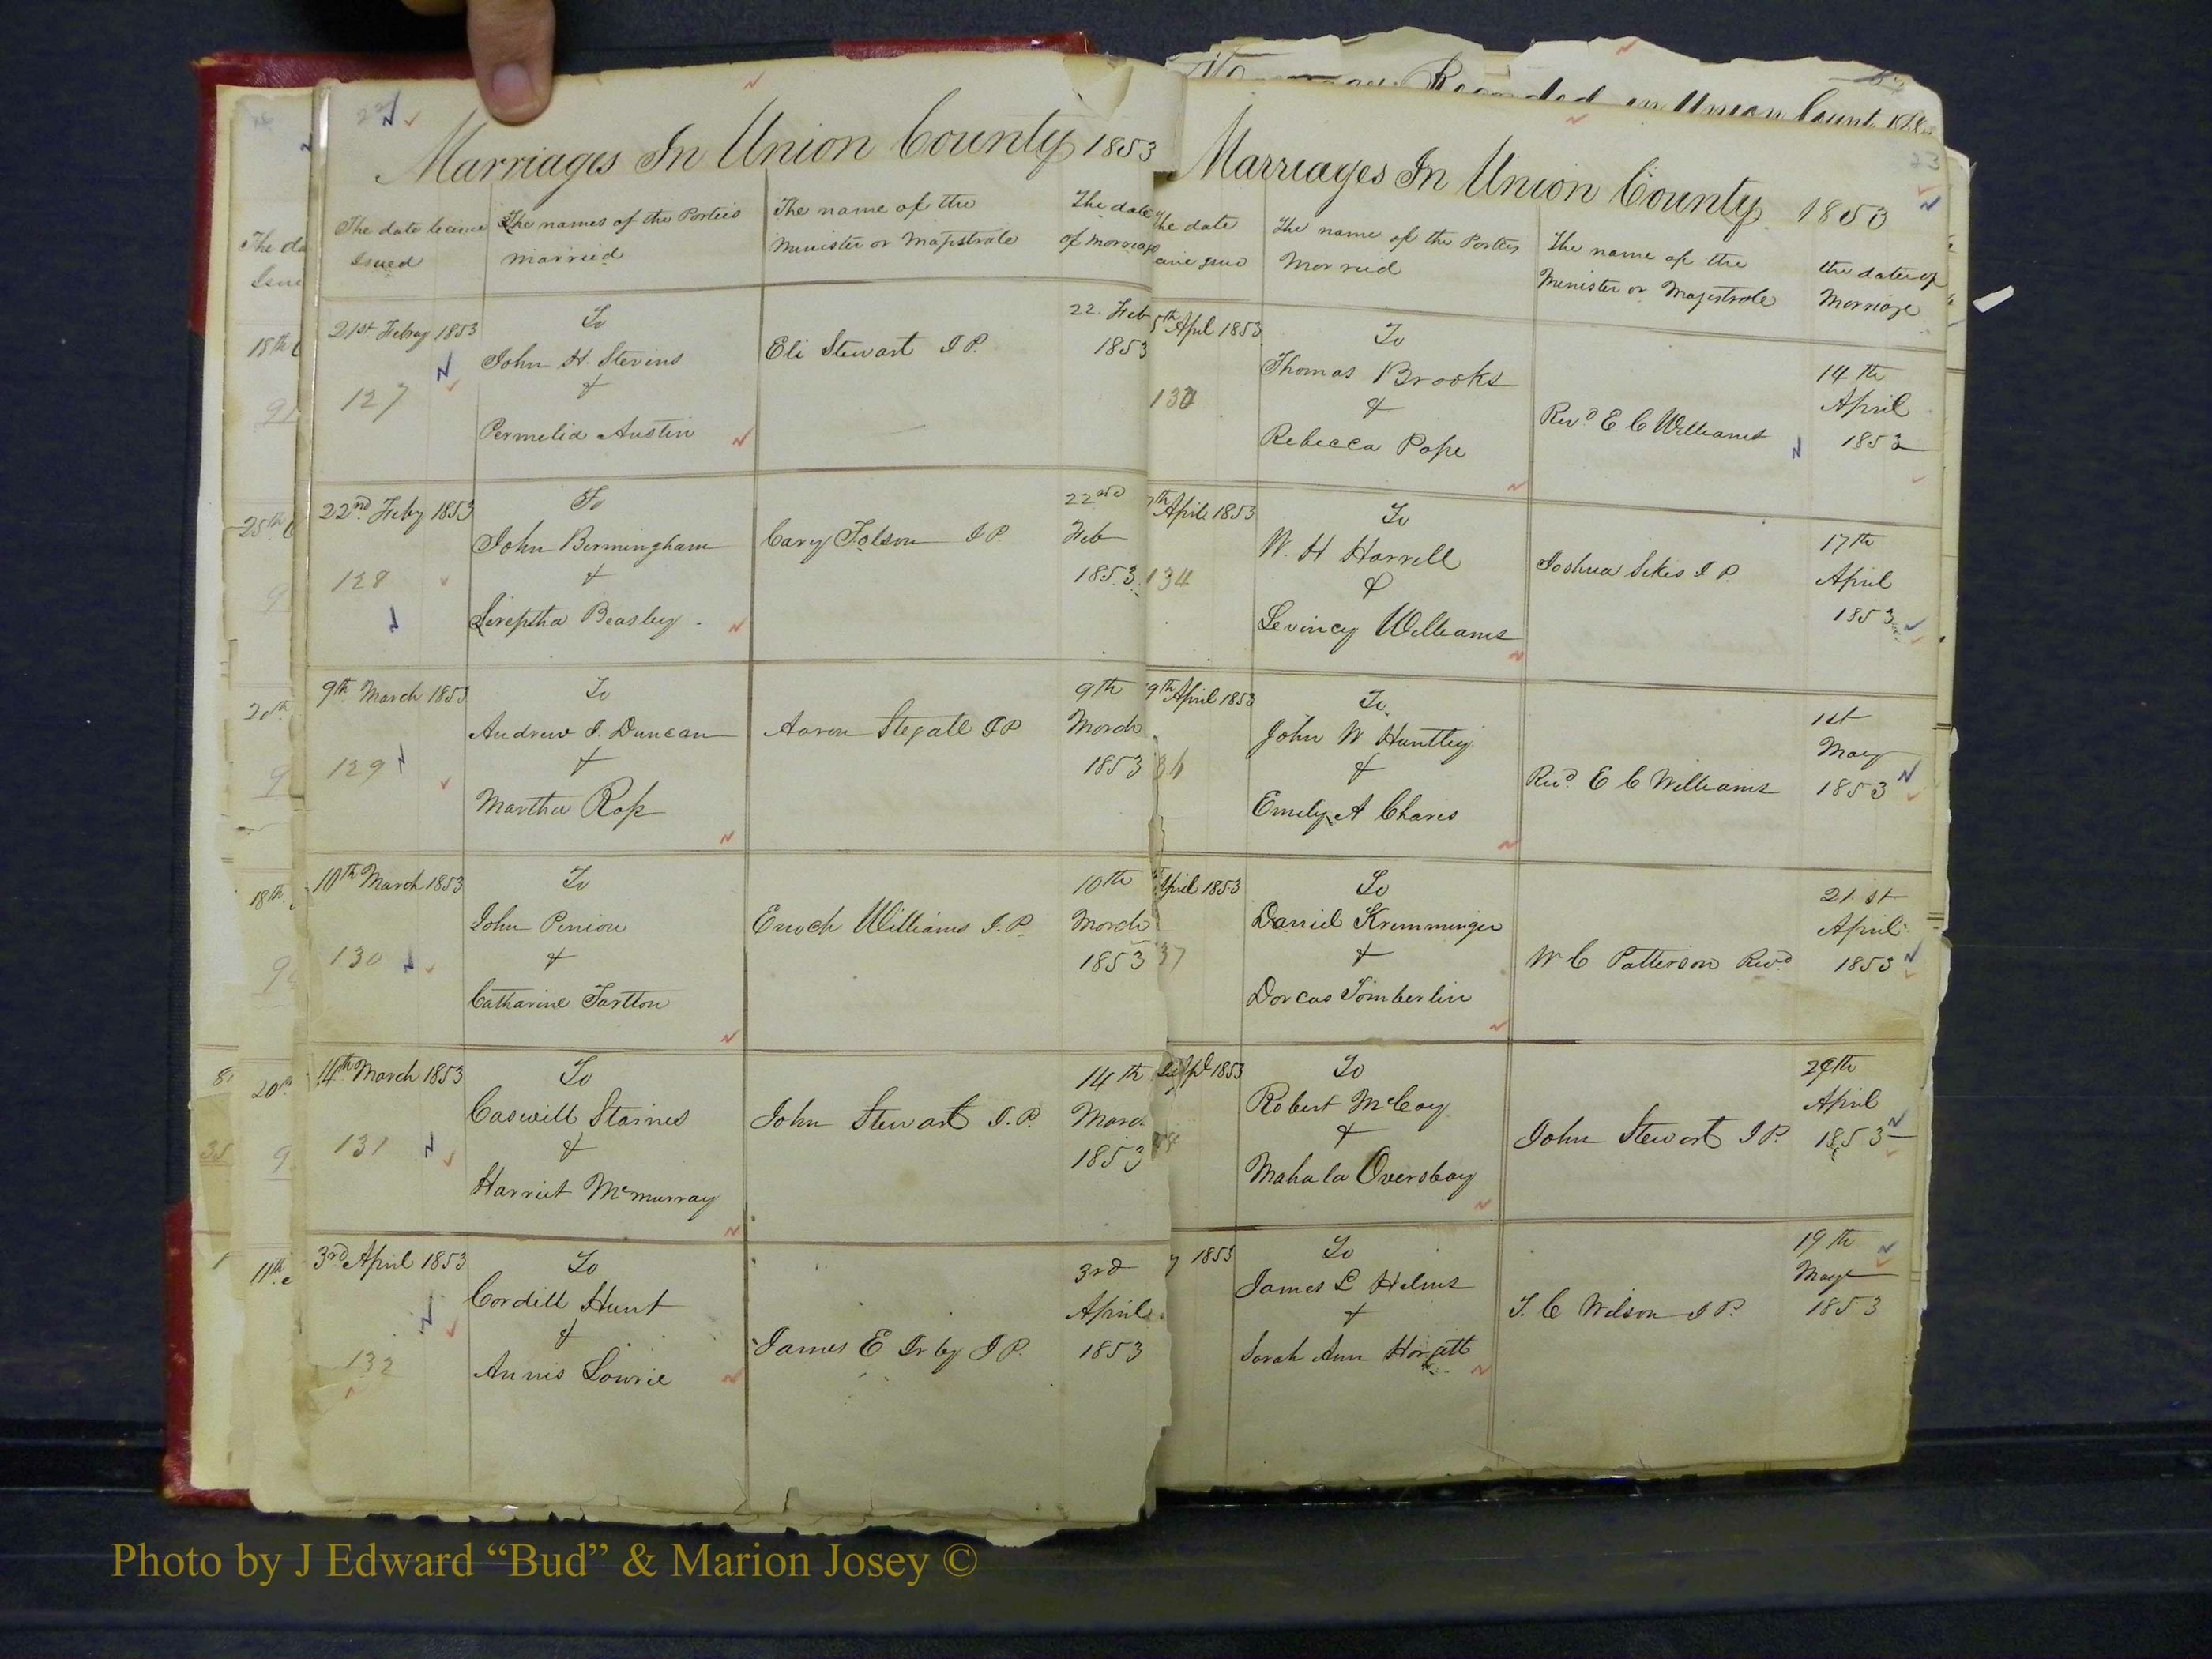 Marriages In Union County 1853
The date licence
Issued
The names of the Parties
married
The name of the
Minister or Majistrate
The date
of marriage
21st Febuy 1853
127
To
John H. Stevins
&
Permelia Austin
Eli Stewart J P.
22. Feb
1853
22nd Feby 1853
128
To
John Birmingham
&
Sireptha Beasley.
Cary Folson J P.
22nd
Feb
1853.
9th March 1853
129
To
Andrew J. Duncan
&
Martha Ross
Aaron Stegall J P
9th
March
1853
10th March 1853
130
To
John Pinion
&
Catharine Tartton
Enoch Williams J. P.
10th
March
1853
14th March 1853
131
To
Caswill Starnes
&
Harriet McMurray
John Stewart J. P.
14th
1853
3rd April 1853
132
To
Cordill Hunt
&
Annis Lowrie
James E Irby J P.
3rd
April
1853
Recorded in Union
23
Marriages In Union County. 1853
The date
The name of the Parties
Married
The name of the
Minister or Majistrate
the date of
Marriage
5th April 1853
To
Thomas Brooks
&
Rebecca Pope
Revd E C Williams
14th
April
1853
April 1853
134
To
W. H Harrell
&
Levincy Williams
Joshua Sikes J P.
17th
April
1853
9th April 1853
36
To
John W Huntley
&
Emily A Chares
Revd E C Williams
1st
May
1853
April 1853
37
To
Daniel Kremminger
&
Dorcas Tomberlin
W C Patterson Revd
21st
April
1853
1853
To
Robert McCoy
&
Mahala Oversbay
John Stewart J P.
April
1853
y 1853
To
James L Helms
&
Sarah Ann
T. C Wilson J P.
19th
May
1853
Photo by J Edward “Bud” & Marion Josey ©